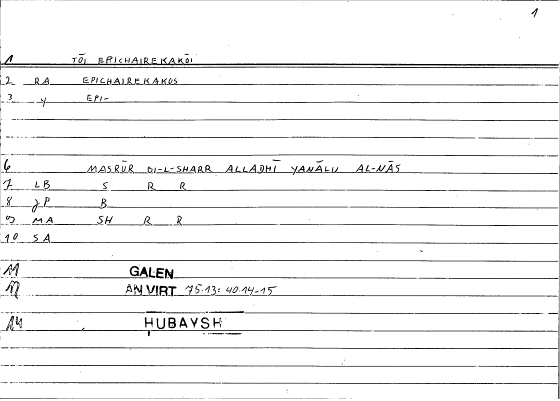 1
1 TŌI EPICHAIREKAKŌI
2 RA EPICHAIREKAKOS
3 Y EPI-
6 MASRŪR BI-L-SHARR ALLADHĪ YANĀLU AL-NĀS
7 LB S R R
8 JP B
9 MA SH R R
10 SA
11 GALEN
12 AN VIRT 75.13: 40.14-15
14 HUBAYSH